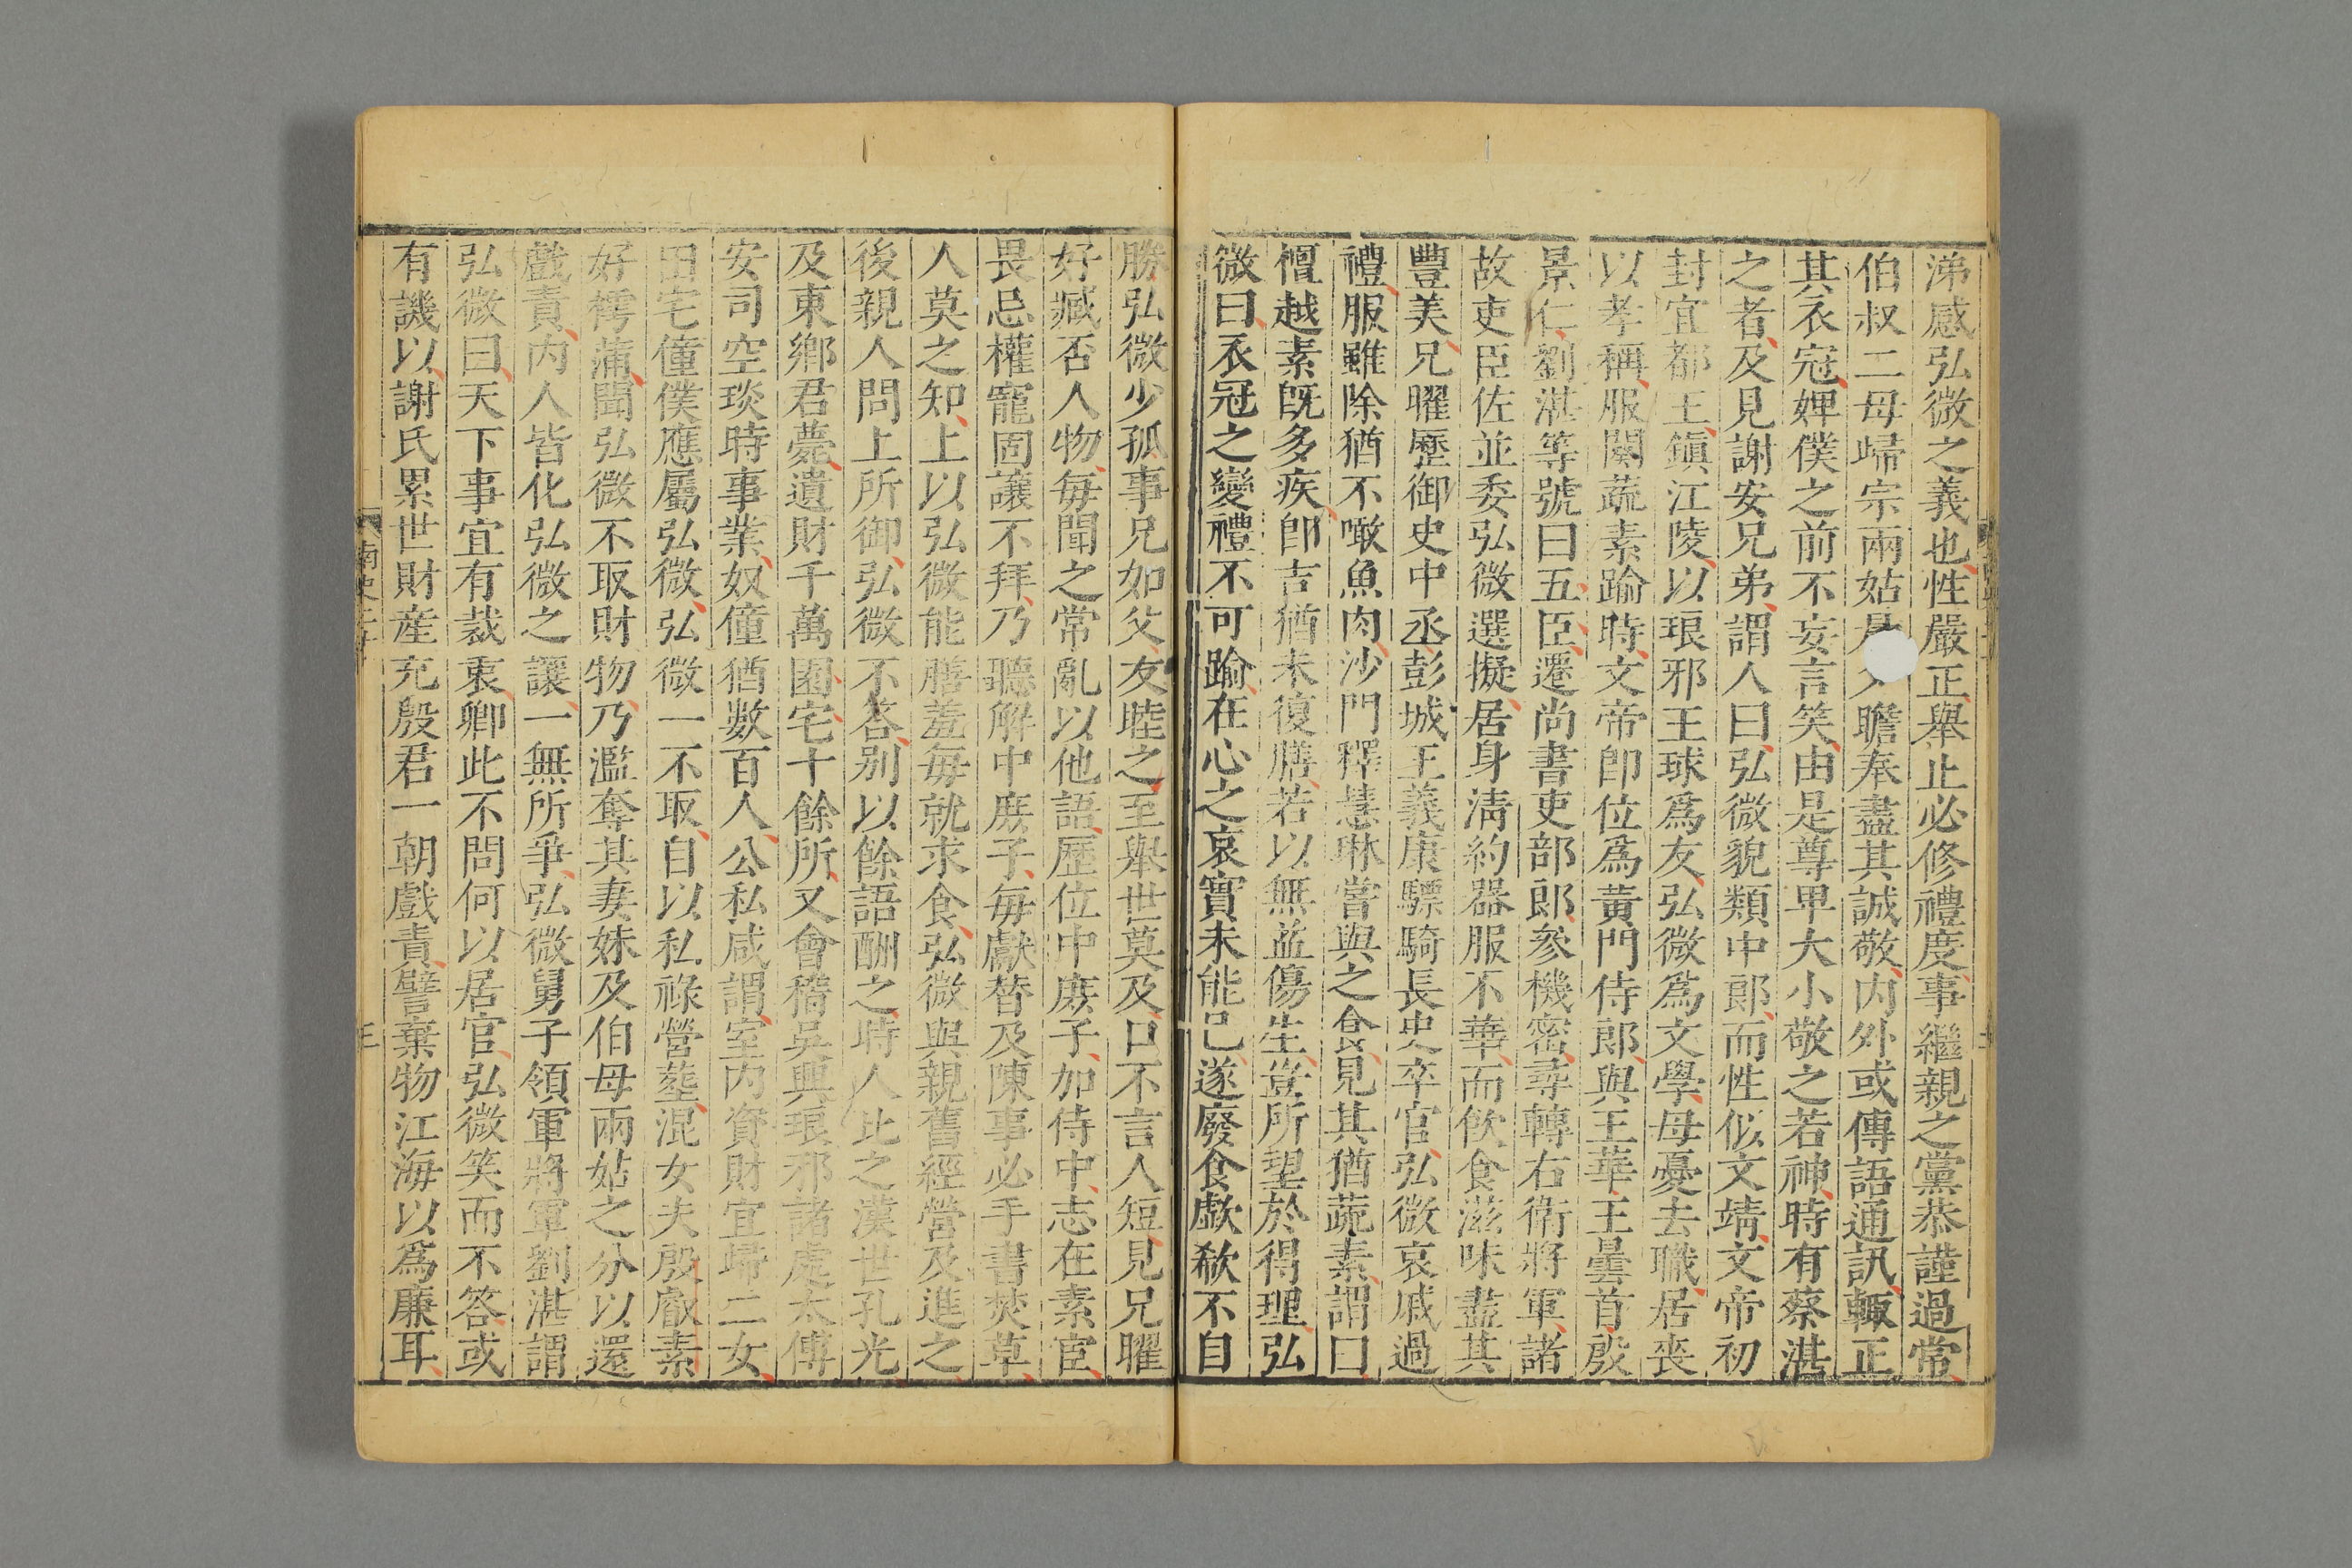 涕感弘微之義也性嚴正舉止必修禮度事繼親之黨恭謹過常
伯叔二母歸宗兩姑晨夕瞻奉盡其誠敬内外或傳語通訊輙正
其衣冠婢僕之前不妄言笑由是尊卑大小敬之若神時有蔡湛
之者及見謝安兄弟謂人曰弘微貌類中郎而性似文靖文帝初
封宜都王鎭江陵以琅邪王球爲友弘微爲文學母憂去職居喪
以孝稱服闋蔬素踰時文帝卽位爲黃門侍郎與王華王曇首殷
景仁劉湛等號曰五臣遷尚書吏部郎參機密尋轉右衛將軍諸
故吏臣佐並委弘微選擬居身淸約器服不華而飲食滋味盡其
豐美兄曜歷御史中丞彭城王義康驃騎長史卒官弘微哀戚過
禮服雖除猶不噉魚肉沙門釋慧琳嘗與之食見其猶蔬素謂曰
檀越素旣多疾卽吉猶未復膳若以無益傷生豈所望於得理弘
微曰衣冠之變禮不可踰在心之哀實未能已遂廢食歔欷不自
勝弘微少孤事兄如父友睦之至舉世莫及口不言人短見兄曜
好臧否人物每聞之常亂以他語歷位中庶子加侍中志在素宦
畏忌權寵固讓不拜乃聽解中庶子每獻替及陳事必手書焚草
人莫之知上以弘微能膳羞每就求食弘微與親舊經營及進之
後親人問上所御弘微不答别以餘語酬之時人比之漢世孔光
及東鄉君薨遺財千萬園宅十餘所又會稽吳興琅邪諸處太傅
安司空琰時事業奴僮猶數百人公私咸謂室内資財宜歸二女
田宅僮僕應屬弘微弘微一不取自以私祿營葬混女夫殷叡素
好樗蒲聞弘微不取財物乃濫奪其妻妹及伯母兩姑之分以還
戲責内人皆化弘微之讓一無所爭弘微舅子領軍將軍劉湛謂
弘微曰天下事宜有裁衷卿此不問何以居官弘微笑而不答或
有譏以謝氏累世財産充殷君一朝戲責譬棄物江海以爲廉耳
南史
三